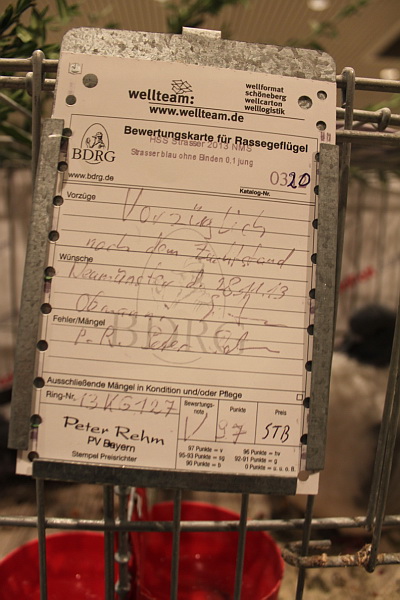 wellteam:
www.wellteam.de
wellformat
schöneberg
wellcarton
welllogistik
BDRG
www.bdrg.de
Bewertungskarte für Rassegeflügel
HSS Strasser 2013 NMS
Strasser blau ohne Binden 0,1 jung
0320
Katalog-Nr.
Vorzüge
Vorzüglich
nach dem Zuchtstand
Wünsche
Neumünster d. 28.11.13
Obmann
Fehler/Mängel
P.R. Peter
BDRG
Ausschließende Mängel in Kondition und/oder Pflege
Ring-Nr. 13KG127
Bewertungs-
note
V
Punkte
97
Preis
STB
Peter Rehm
PV Bayern
Stempel Preisrichter
97 Punkte = v
96 Punkte = hv
95-93 Punkte = sg
92-91 Punkte = g
90 Punkte = b
0 Punkte = u. o. B.